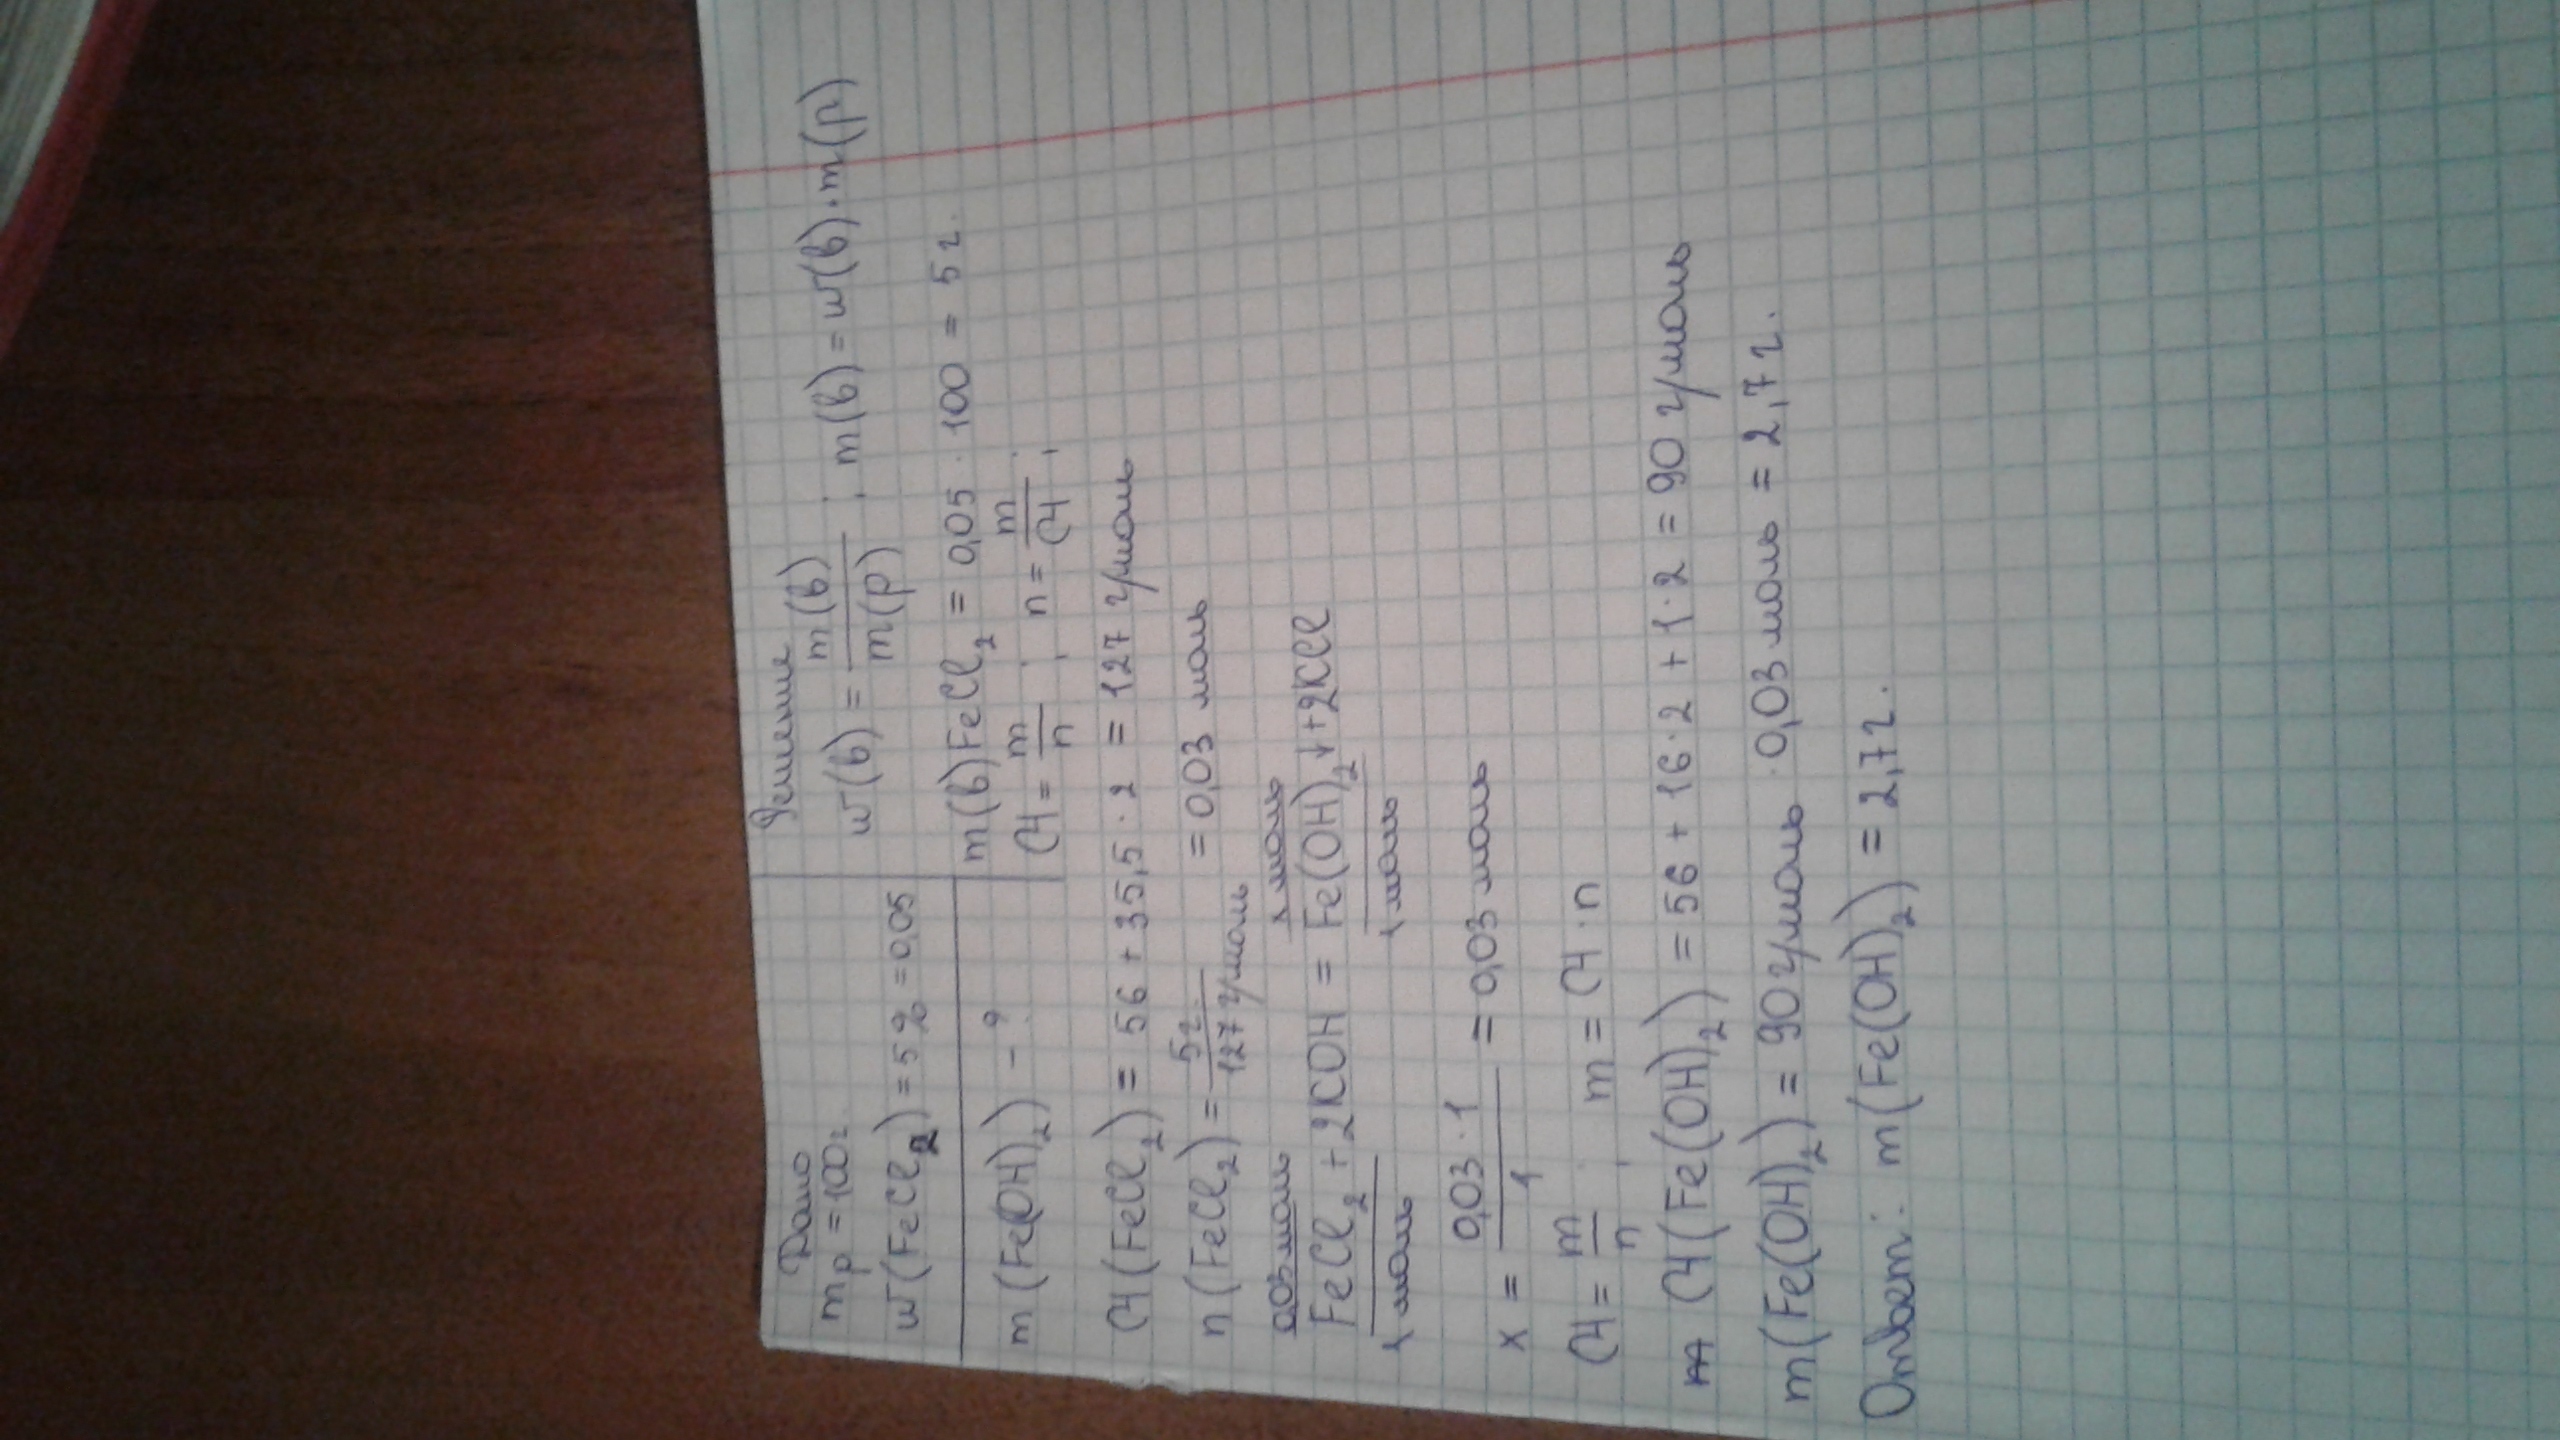 Дано
mр = 100г
w(FeCl₂) = 5% = 0,05
m(Fe(OH)₂) - ?
Решение
w(в) = m(в)/m(р) ; m(в) = w(в)·m(р)
m(в)FeCl₂ = 0,05 · 100 = 5 г.
M = m/n ; n = m/M ;
M(FeCl₂) = 56 + 35,5 · 2 = 127 г/моль
n(FeCl₂) = 5г/127 г/моль = 0,03 моль
0,03 моль x моль
FeCl₂ + 2KOH = Fe(OH)₂↓ + 2KCl
1 моль 1 моль
x = 0,03 · 1/1 = 0,03 моль
M = m/n ; m = M · n
M(Fe(OH)₂) = 56 + 16·2 + 1·2 = 90 г/моль
m(Fe(OH)₂) = 90 г/моль · 0,03 моль = 2,7 г.
Ответ: m(Fe(OH)₂) = 2,7 г.